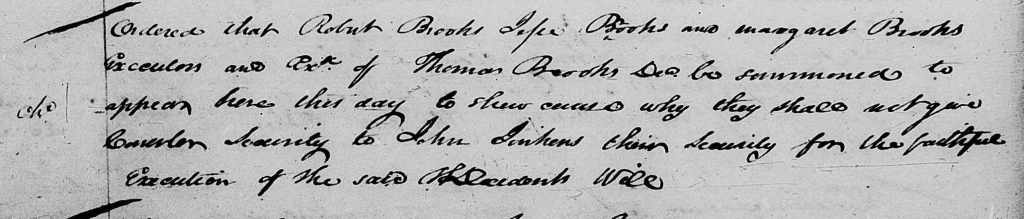 Ordered that Robert Brooks Jesse Brooks and margaret Brooks
Executors and Exx. of Thomas Brooks Dec. be summoned to
appear here this day to shew cause why they shall not give
Counter Security to John Jinkens their security for the faithful
Execution of the said Decedents Will